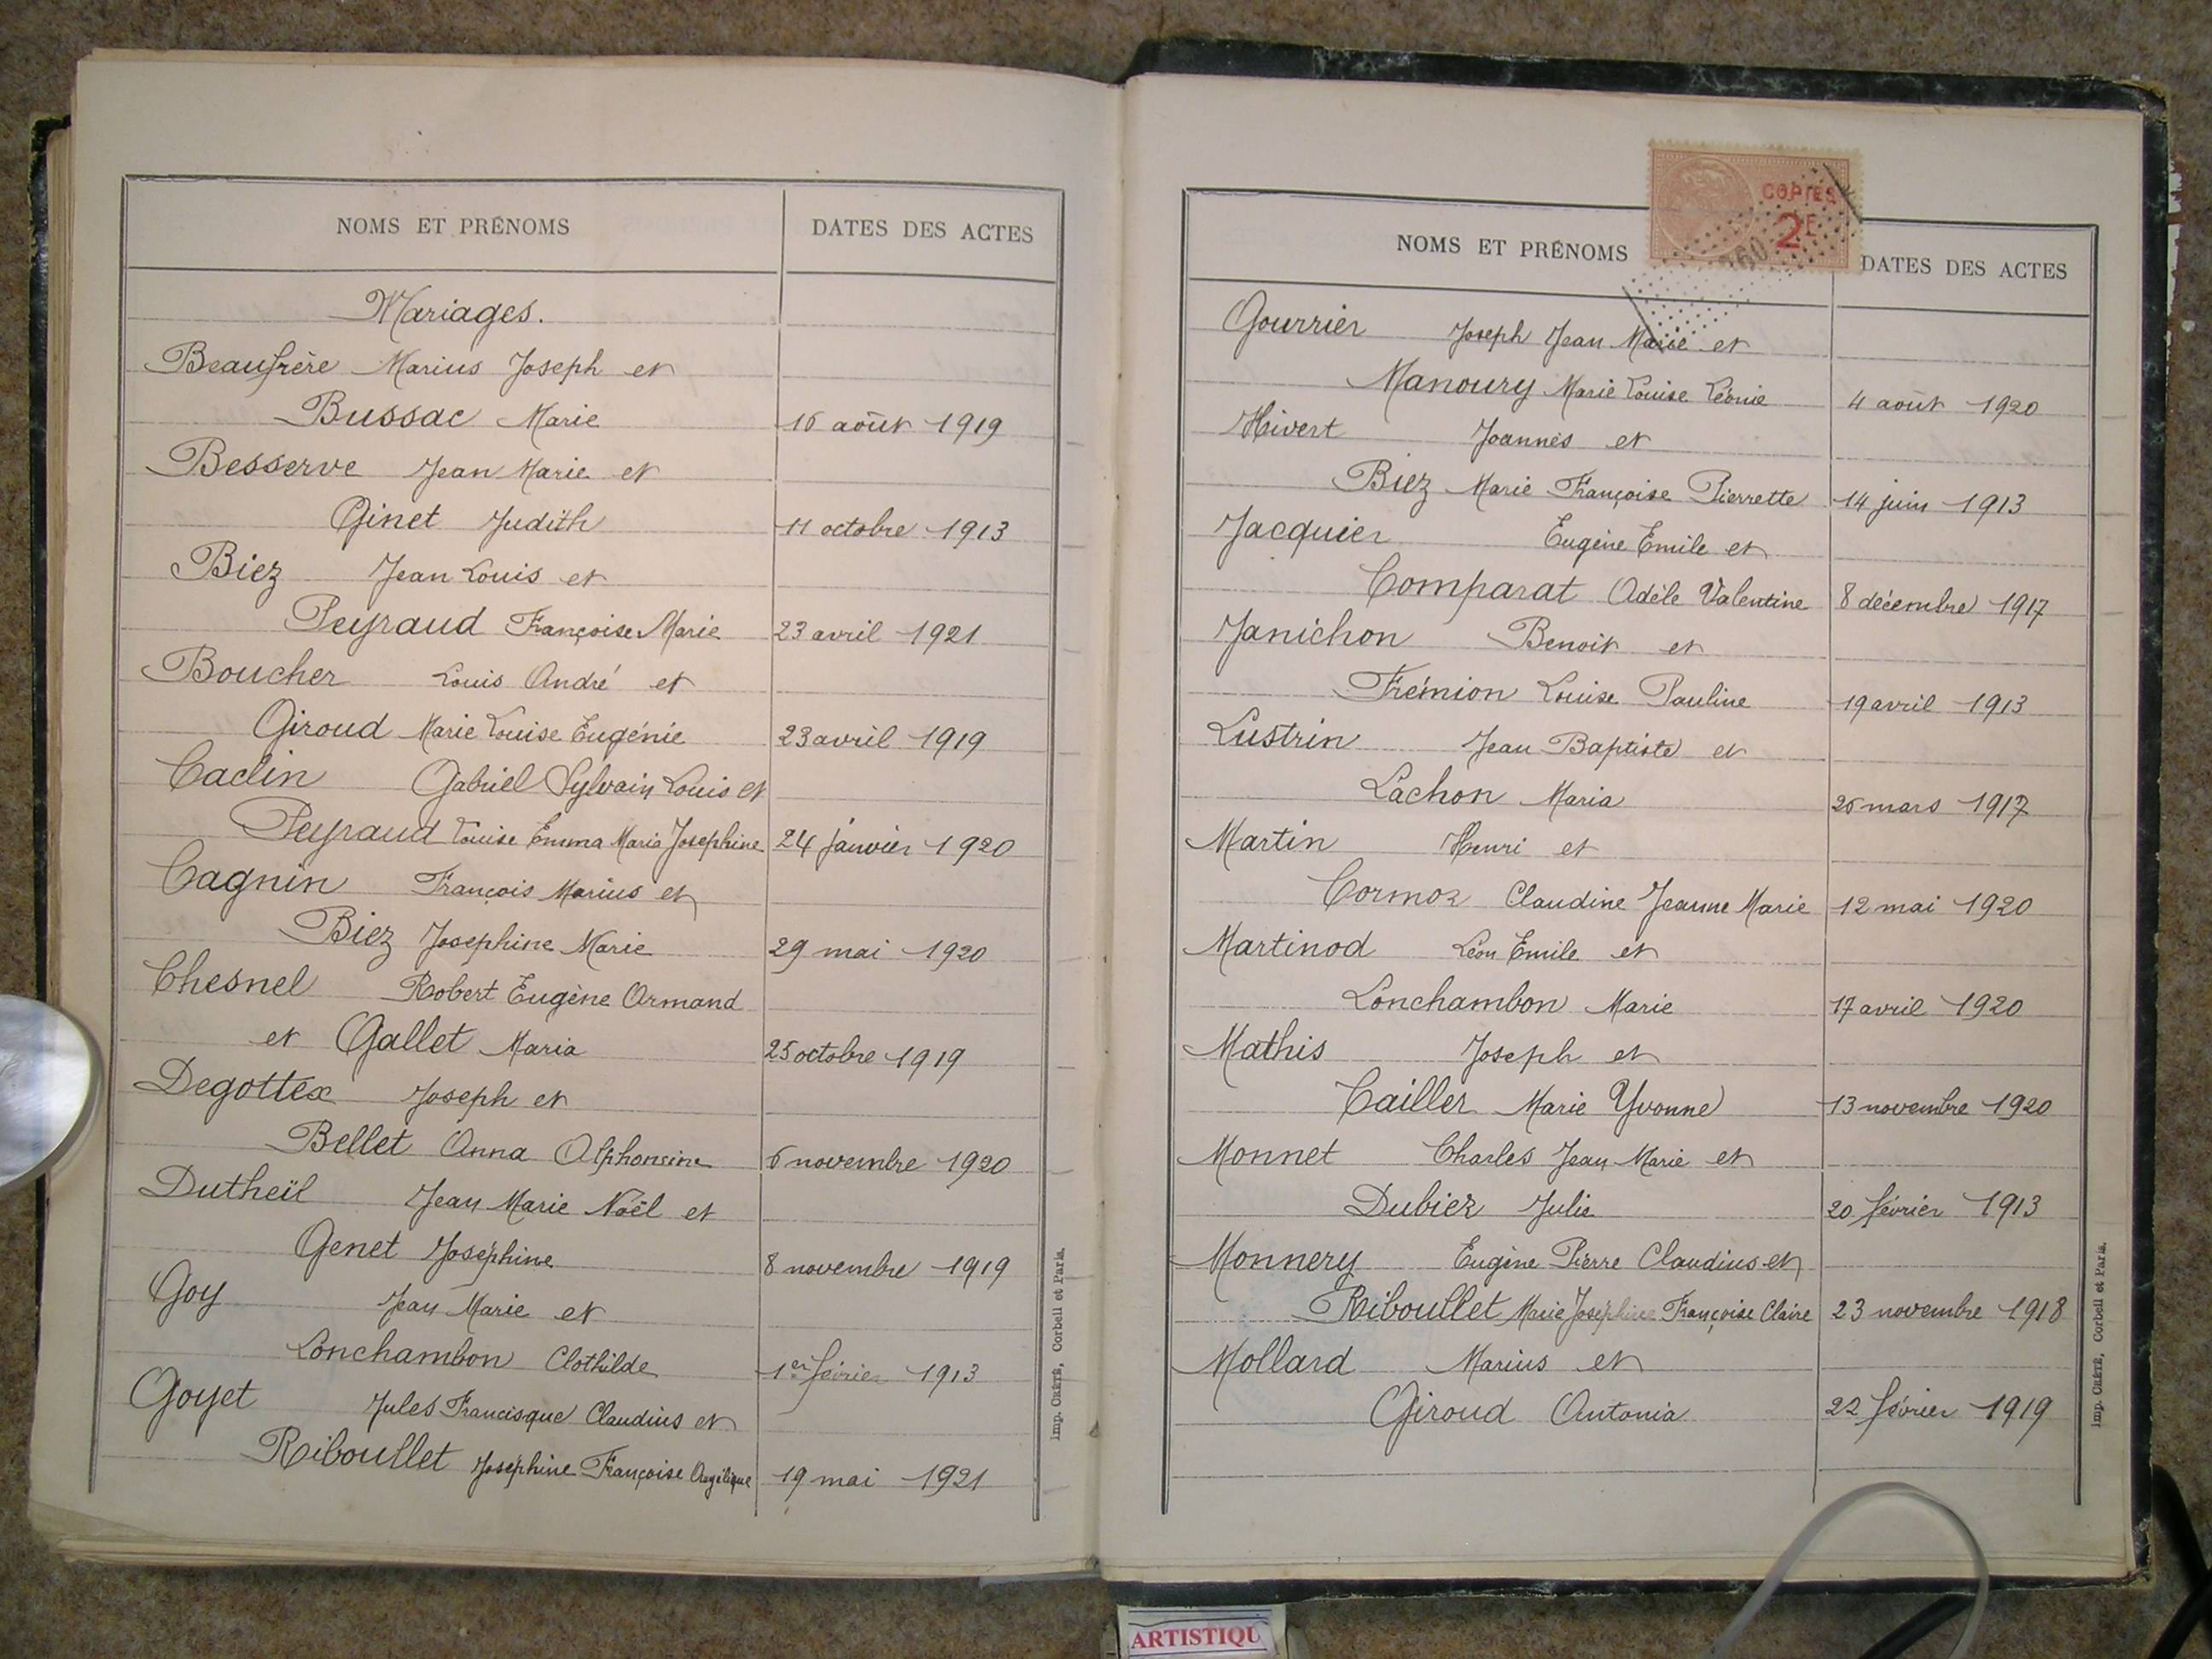 NOMS ET PRÉNOMS DATES DES ACTES
Mariages.
Beaufrère Marius Joseph et
Bussac Marie 16 août 1919
Besserve Jean Marie et
Ginet Judith 11 octobre 1913
Biez Jean Louis et
Peyraud Françoise Marie 23 avril 1921
Boucher Louis André et
Giroud Marie Louise Eugénie 23 avril 1919
Caclin Gabriel Sylvain Louis et
Peyraud Louise Emma Maria Josephine 24 janvier 1920
Cagnin François Marius et
Biez Josephine Marie 29 mai 1920
Chesnel Robert Eugène Armand
et Gallet Maria 25 octobre 1919
Degottex Joseph et
Bellet Anna Alphonsine 6 novembre 1920
Dutheil Jean Marie Noël et
Genet Joséphine 8 novembre 1919
Goy Jean Marie et
Lonchambon Clothilde 1er février 1913
Goyet Jules Francisque Claudius et
Riboullet Joséphine Françoise Angélique 19 mai 1921
Imp. CRÉTÉ, Corbeil et Paris.
COPIES
2F
NOMS ET PRÉNOMS DATES DES ACTES
Gourrier Joseph Jean Marie et
Manoury Marie Louise Léonie 4 août 1920
Hivert Joannès et
Biez Marie Françoise Pierrette 14 juin 1913
Jacquier Eugène Emile et
Comparat Adèle Valentine 8 décembre 1917
Janichon Benoit et
Frémion Louise Pauline 19 avril 1913
Lustrin Jean Baptiste et
Lachon Maria 26 mars 1917
Martin Henri et
Cormoz Claudine Jeanne Marie 12 mai 1920
Martinod Léon Emile et
Lonchambon Marie 17 avril 1920
Mathis Joseph et
Cailler Marie Yvonne 13 novembre 1920
Monnet Charles Jean Marie et
Dubiez Julie 20 février 1913
Monnery Eugène Pierre Claudius et
Riboullet Marie Joséphine Françoise Claire 23 novembre 1918
Mollard Marius et
Giroud Antonia 22 février 1919
Imp. CRÉTÉ, Corbeil et Paris.
ARTISTIQU